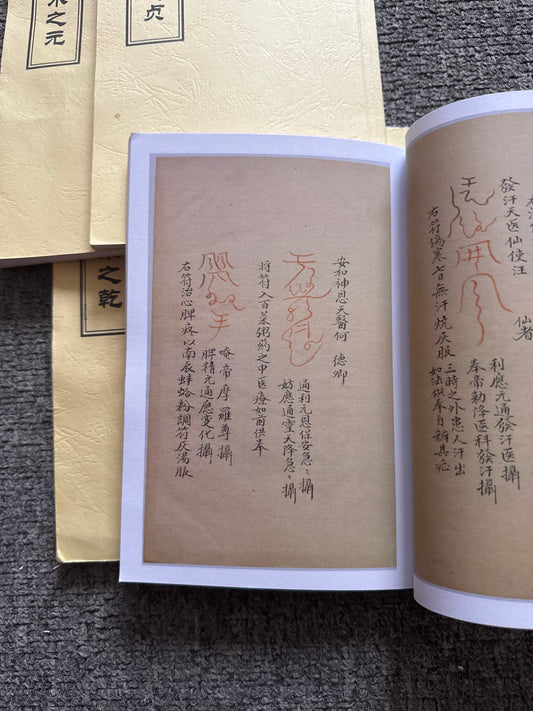 朱之元
贞
之乾
發汗天医仙使汪
仙者
利應元通發汗医攝
奉帝勅降医科發汗攝
右符傷寒皆無汗燒灰服
三時之外患人汗出
如法供奉自
安和神恩天醫何
德卿
通利元恩保安急〻攝
妨應通靈天降急〻攝
將符入百菜粥药之中医療如前供奉
唵帝摩羅尊攝
脾精元通應变化攝
右符治心脾疼以南辰蚌蛤粉調符灰湯服